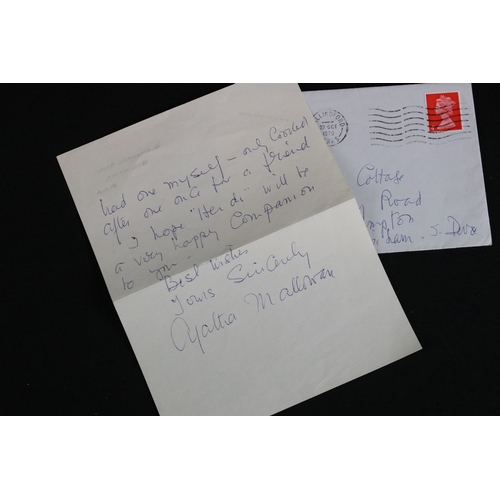 had one myself - only looked
after one once for a friend
I hope "Heidi" will be
a very happy Companion
to you -
Best Wishes
Yours Sincerely
Agatha Mallowan
OCT
1970
Cottage
Road
S. Devon